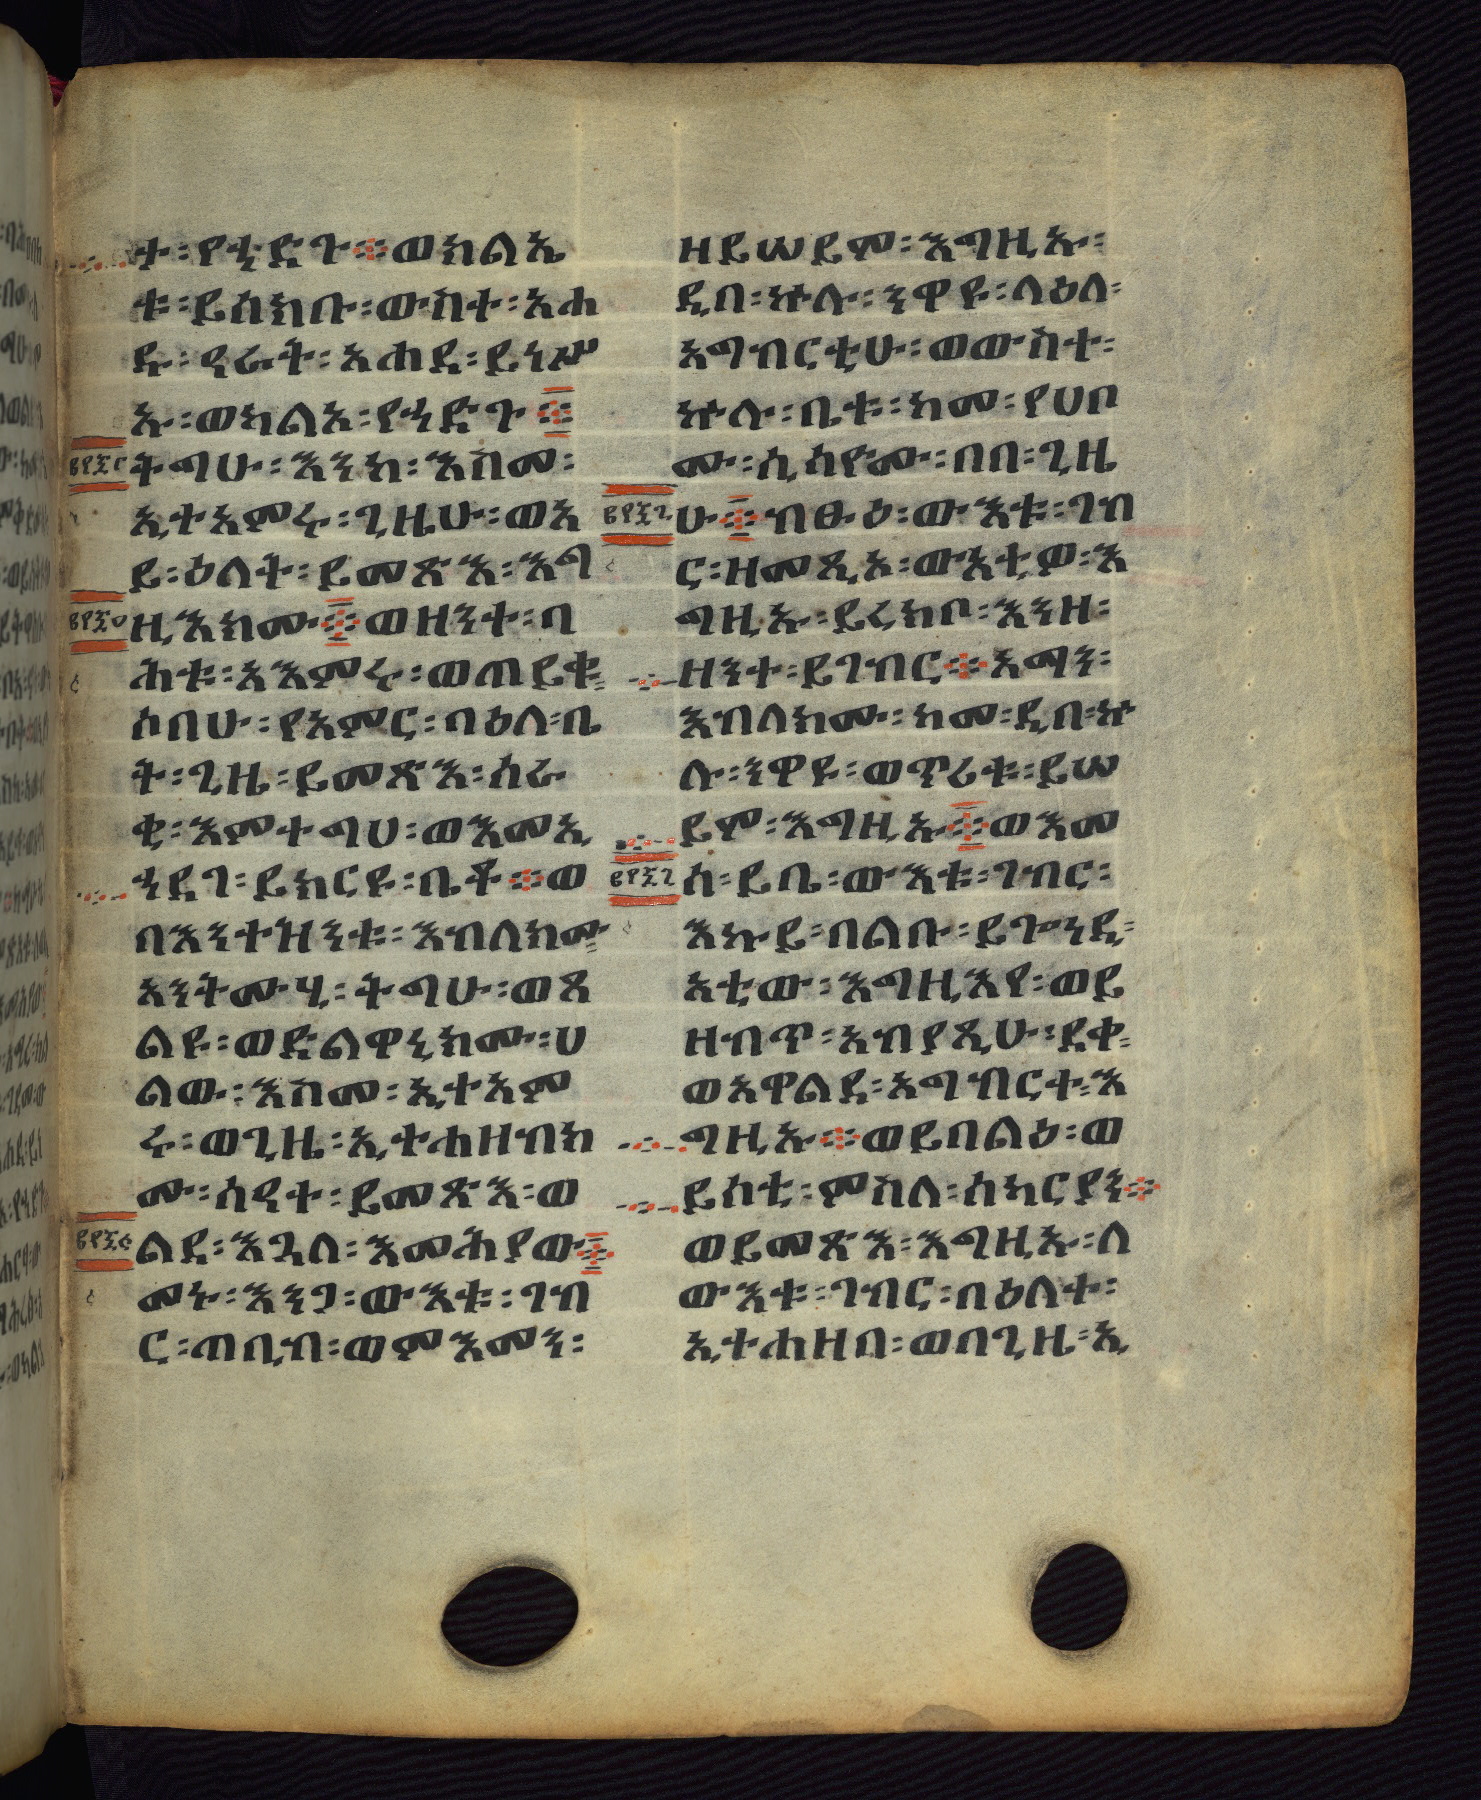 ተ፡የኃድጉ፨ወክልኤ
ቱ፡ይሰክቡ፡ውስተ፡አሐ
ዱ፡ዓራት፡አሐደ፡ይነሥ
ኡ፡ወካልአ፡የኃድጉ፨
ትግሁ፡እንከ፡እስመ፡
ኢተአምሩ፡ጊዜሁ፡ወአ
ይ፡ዕለት፡ይመጽእ፡እግ
ዚእክሙ፨ወዘንተ፡ባ
ሕቱ፡አእምሩ፡ወጠይቁ፡
ሶበሁ፡የአምር፡በዕለ፡ቤ
ት፡ጊዜ፡ይመጽእ፡ሰራ
ቂ፡እምተግሀ፡ወእመኢ
ኃደገ፡ይክርዩ፡ቤቶ፨ወ
በእንተዝንቱ፡እብለክሙ፡
አንትሙሂ፡ትግሁ፡ወጸ
ልዩ፡ወድልዋኒክሙ፡ሀ
ልው፡እስመ፡ኢተአም
ሩ፡ወጊዜ፡ኢተሐዘብክ
ሙ፡ሰዓተ፡ይመጽእ፡ወ
ልደ፡እጓለ፡እመሕያው፨
መኑ፡እንጋ፡ውእቱ፡ገብ
ር፡ጠቢብ፡ወምእመን፡
ዘይሠይሞ፡እግዚኡ፡
ዲበ፡ኵሉ፡ንዋዩ፡ላዕለ፡
አግብርቲሁ፡ወውስተ፡
ኵሉ፡ቤቱ፡ከመ፡የሀቦ
ሙ፡ሲሳዮሙ፡በበ፡ጊዜ
ሁ፨ብፁዕ፡ውእቱ፡ገብ
ር፡ዘመጺኦ፡ውእቲዎ፡እ
ግዚኡ፡ይረክቦ፡እንዘ፡
ዘንተ፡ይገብር፨አማን፡
እብለክሙ፡ከመ፡ዲበ፡ኵ
ሉ፡ንዋዩ፡ወጥሪቱ፡ይሠ
ይሞ፡እግዚኡ፨ወእመ
ሰ፡ይቤ፡ውእቱ፡ገብር፡
እኩይ፡በልቡ፡ይጐንዲ፡
አቲው፡እግዚእየ፡ወይ
ዘብጥ፡አብያጺሁ፡ደቀ፡
ወአዋልደ፡አግብርተ፡እ
ግዚኡ፨ወይበልዕ፡ወ
ይሰቲ፡ምስለ፡ሰካርያን፨
ወይመጽእ፡እግዚኡ፡ለ
ውእቱ፡ገብር፡በዕለተ፡
ኢተሐዘበ፡ወበጊዜ፡ኢ